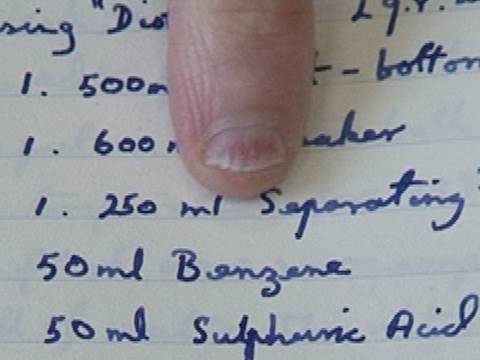 sing "Dis
1. 500m t-bottom
1. 600 m eaker
1. 250 ml Separating
50ml Benzene
50ml Sulphuric Acid